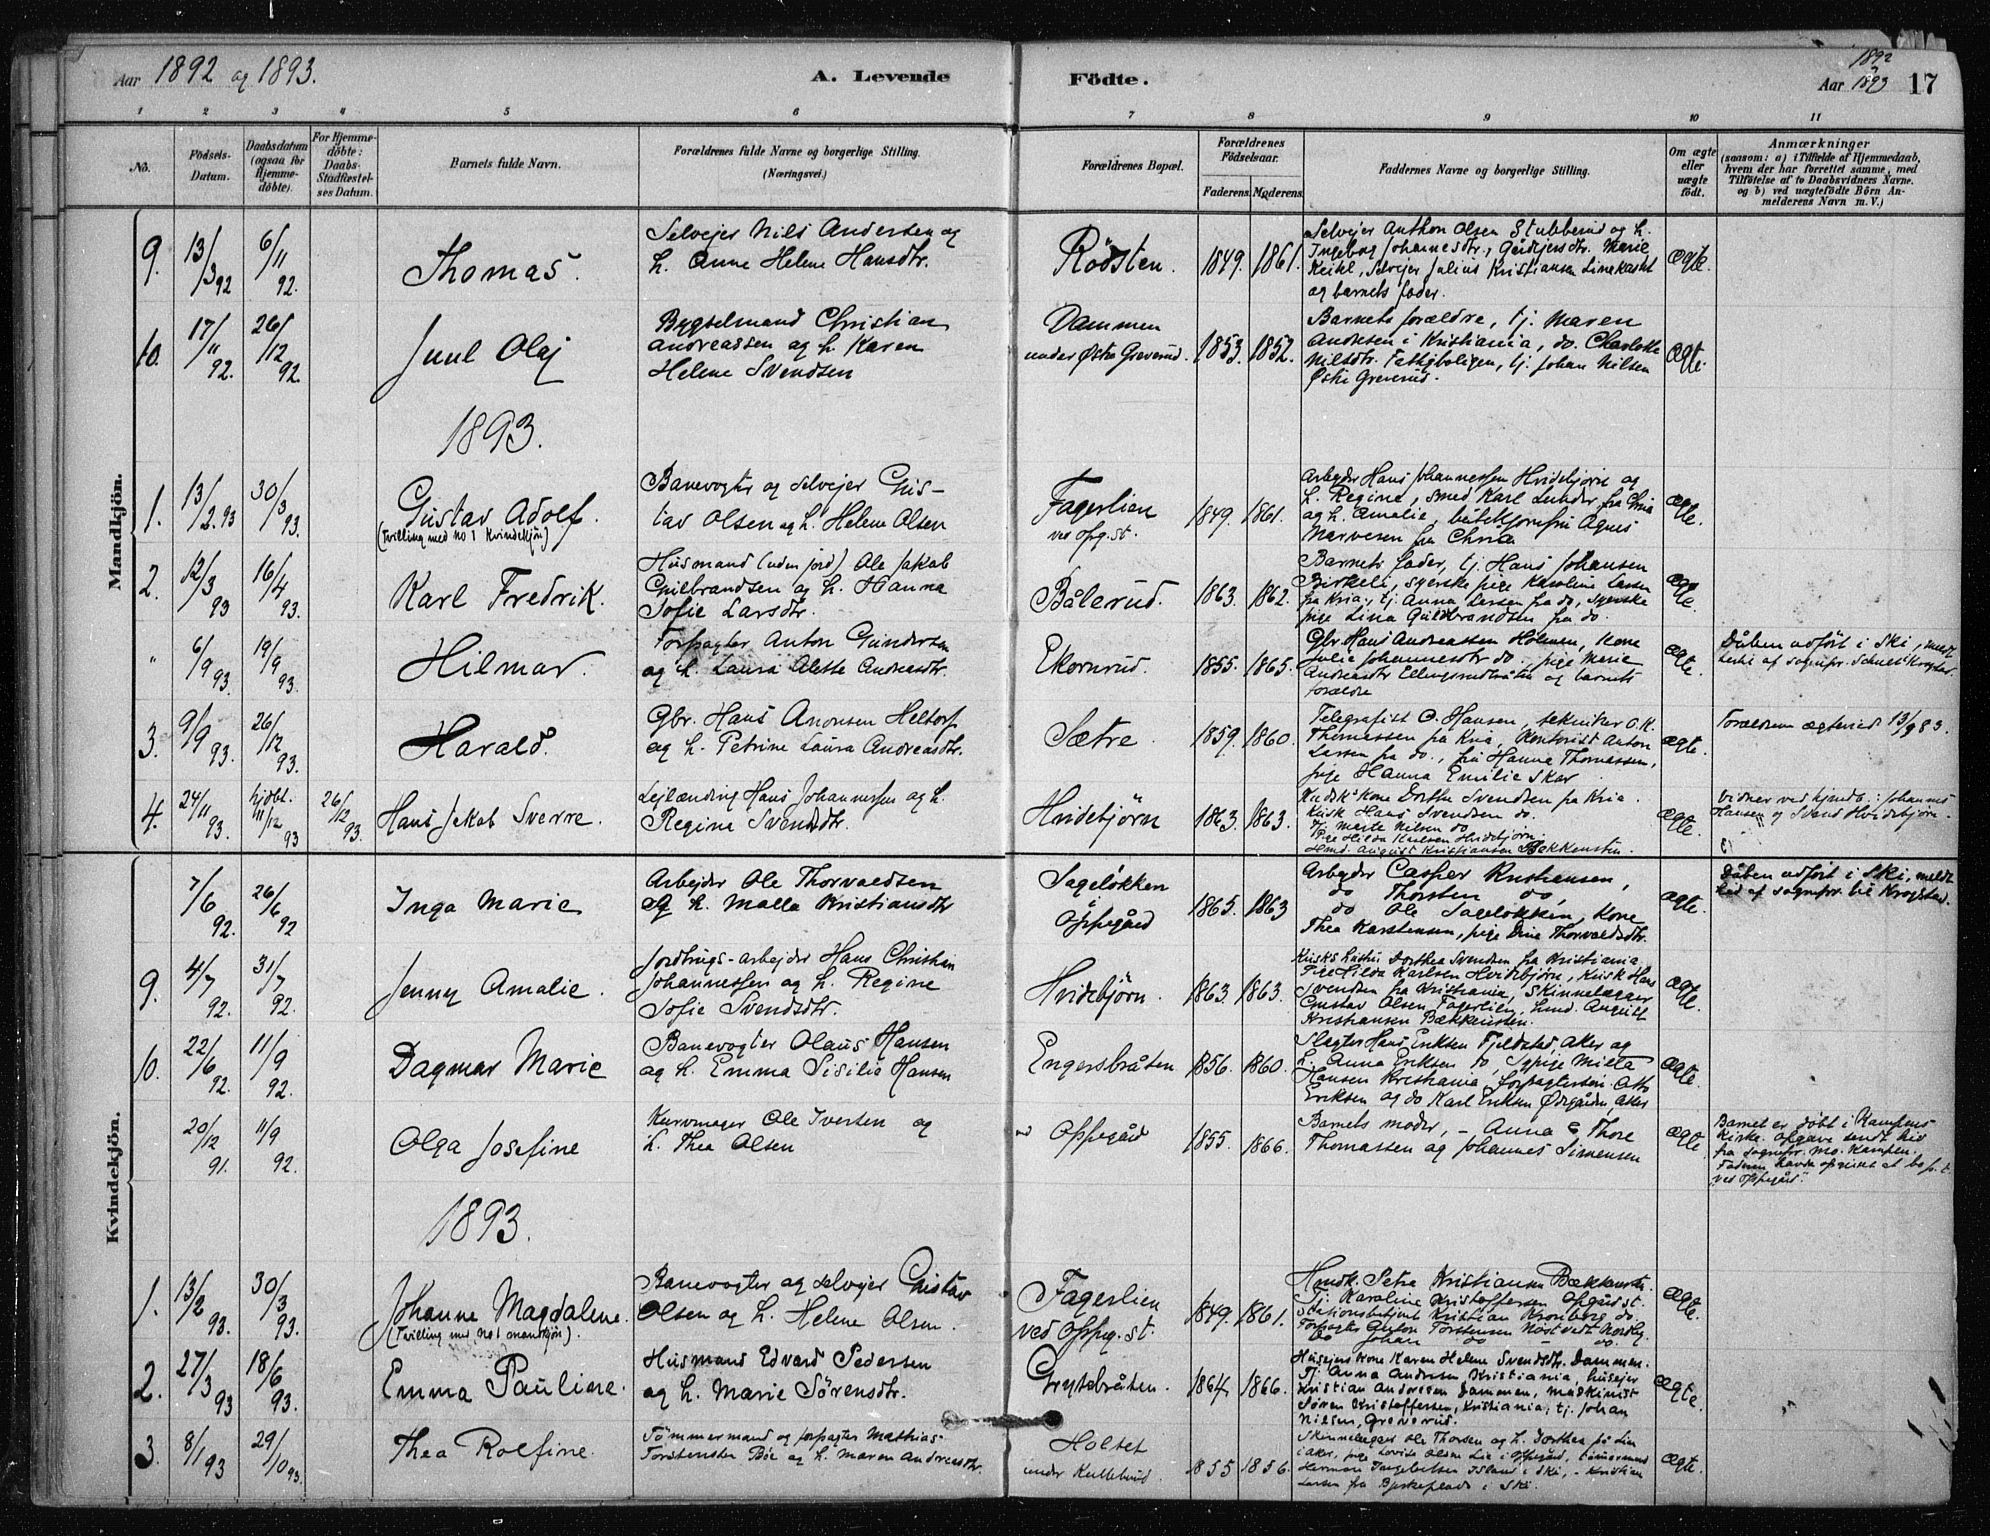 Aar 1892 og 1893.
A. Levende
Födte.
1892
Aar 1893
17
1 2 3 4 5 6 7 8 9 10 11
No.
Födsels-Datum.
Daabsdatum (ogsaa for Hjemme-döbte).
For Hjemme-döbte: Daabs-Stadfæstel-ses Datum.
Barnets fulde Navn.
Forældrenes fulde Navne og borgerlige Stilling.
(Næringsvei.)
Forældrenes Bopæl.
Forældrenes Födselsaar.
Faderens. Moderens.
Faddernes Navne og borgerlige Stilling.
Om ægte eller uægte födt.
Anmærkninger
(saasom: a) i Tilfælde af Hjemmedaab, hvem der har forrettet samme, med Tilföielse af to Daabsvidners Navne. og b) ved uægtefödte Börn An-melderens Navn m. V.)
Mandkjön.
9. 13/3 92 6/11 92. Thomas.
Selvejer Nils Andersen og
h. Anne Helene Hansdtr.
Rödsten. 1849. 1861.
Selvejer Anthon Olsen Stubberud og h.
Ingeborg Johannesdtr., Gårdejersdtr. Marie
Keitel, Selvejer Julius Kristiansen
og barnets fader.
ægte.
10. 17/11 92. 26/12 92. Juul Olaf
Bygselmand Christian
Andreassen og h. Karen
Helene Svendsen
Dammen
under Østre Greverud. 1853. 1852.
Barnets forældre, tj. Maren
Andresen i Kristiania, do. Charlotte
Nilsdtr. Fattigboligen, tj. Johan Nilsen
Østre Greverud.
ægte.
1893.
1. 13/2 93 30/3 93. Gustav Adolf.
(Tvilling med no 1 Kvindekjön)
Banevogter og selvejer Gus-
tav Olsen og h. Helene Olsen
Fagerlien
ved Opg. st. 1849. 1861.
Arbejder Hans Johannessen Hvidebjörn og
h. Regine, smed Karl fra Chria
og h. Amalie, Agnes
fra Chria
ægte.
2. 12/3 93 16/4 93. Karl Fredrik.
Husmand (uden jord) Ole Jakob
Gulbrandsen og h. Hanna
Sofie Larsdtr.
Bålerud. 1863. 1862.
Barnets fader, tj. Hans Johansen
Birkeli, syerske pige Karoline Larsen
fra Kria., tj. Anna Larsen fra do, syerske
pige Lina Guldbrandsen fra do.
ægte.
" 6/9 93. 19/9 93. Hilmar.
Forpagter Anton Gundersen
og h. Laura Alette Andreasdtr.
Ekornrud. 1855. 1865.
Gbr. Hans Andreassen Holmen, kone
Julie Johannesdtr do., pige Marie
Andreasdtr Ellingsrudbråten og barnets
forældre
ægte.
Dåben udfört i Ski, meddelt
af sognepr.
3. 9/9 93. 26/12 93. Harald.
Gbr. Hans Antonsen
og h. Petrine Laura Andreasdtr.
Sætre. 1859. 1860.
Telegrafist O. Hansen, tekniker O.K.
Thomassen fra Kria, Kontorist Anton
Larsen fra do., frk Hanna Thomassen,
pige Hanna Emilie Skar
ægte.
Forældrene ægteviet 13/9 83.
4. 24/11 93. hjdbt. 11/12 93 26/12 93. Hans Jakob Sverre.
Lejlænding Hans Johannessen og h.
Regine Svendsdtr.
Hvidebjörn 1863. 1863.
Kudsk's kone Dorthe Svendsen fra Kria.
Kusk Hans Svendsen do.
tj. Marte Nilsen do
Pige Hilda Karlsen Hvidebjörn.
Hmd. August Kristiansen Bækkensten.
ægte.
Vidner ved hjmdb: Johannes
Hansen og Svend Hvidebjörn.
Kvindekjön.
7/6 92. 26/6 92 Inga Marie
Arbejder Ole Thorvaldsen
og h. Malla Kristiansdtr
Sagelökken
i Oppegård 1865. 1863
Arbejder Casper Kristiansen,
do Thorsten do,
do Ole Sagelökken, Kone
Thea Karstensen, pige Thorvaldsdtr.
ægte.
Dåben udfört i Ski, meddelt
af sognepr. til Krogstad.
9. 4/7 92. 31/7 92. Jenny Amalie.
Jordbrugs-arbejder Hans Christian
Johannessen og h. Regine
Sofie Svendsdtr.
Hvidebjörn. 1863. 1863.
Kusks hustru Dorthea Svendsen fra Kristiania
Pige Hilda Karlsen Hvidebjörn, Kusk Hans
Svendsen fra Kristiania, Skinnelægger
Gustav Olsen Fagerlien, hmd. August
Kristiansen Bækkensten.
ægte.
10. 22/6 92. 11/9 92. Dagmar Marie
Banevogter Olaus Hansen
og h. Emma Sisilie Hansen
Engersbråten 1856. 1860.
Slagter Hans Eriksen Fjeldstad, Aker og
h. Anna Eriksen do, Sypige Milla
Hansen Kristiania, forpagterson Otto
Eriksen og do Karl Eriksen Ødegården, Aker
ægte.
20/12 91. 11/9 92. Olga Josefine
Kurvmager Ole Iversen og
h. Thea Olsen
Oppegård 1855. 1866.
Barnets moder, - Anna & Thore
Thomassen og Johannes Simensen
ægte.
Barnet er döbt i Kampens
Kirke. Opgave sendt hid
fra sognepr. Mo. Kampen.
ved Oppegård.
1893.
1. 13/2 93. 30/3 93. Johanne Magdalene.
(Tvilling med no 1 mandkjön).
Banevogter og selvejer Gustav
Olsen og h. Helene Olsen.
Fagerlien
ved Oppg. st. 1849. 1861.
Hmdk. Petra Kristiansen Bækkensten.
Tj. Karoline Kristoffersen Opgård st.
Stationsbetjent Kristian Kronborg do.
Forpagter Anton Torstensen
Do Johan do do.
ægte.
2. 27/3 93 18/6 93. Emma Pauline.
Husmand Edvard Pedersen
og h. Marie Sörensdtr.
Grytebråten. 1864. 1866.
Husejers kone Karen Helene Svendsdtr. Dammen.
Tj. Anna Andresen Kristiania, husejer
Kristian Andresen Dammen, maskinist
Sören Kristoffersen, Kristiania, tj. Johan
Nilsen, Greverud.
ægte.
3. 8/1 93 29/10 93. Thea Rolfine.
Tömmermand og forpagter Mathias
Torstensen Böe og h. Maren Andreasdtr.
Holtet
under Kullebund. 1855 1856.
Skinnelægger Ole Thorsen og h. Dorthea fra Lin
i Aker, pige Lovise Olsen Lie i Oppegård, tömmermand
Herman Ingebretsen i Ski, - Kristian
Larsen fra i Ski.
ægte.